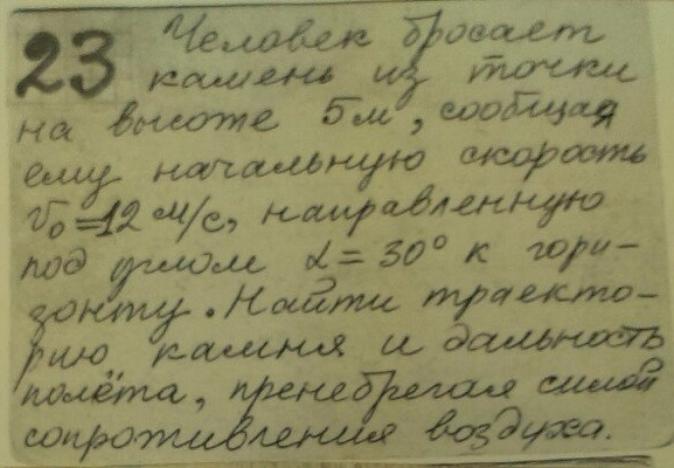 23 Человек бросает
камень из точки
на высоте 5м, сообщая
ему начальную скорость
v₀=12 м/с, направленную
под углом α=30° к гори-
зонту. Найти траекто-
рию камня и дальность
полёта, пренебрегая силой
сопротивления воздуха.